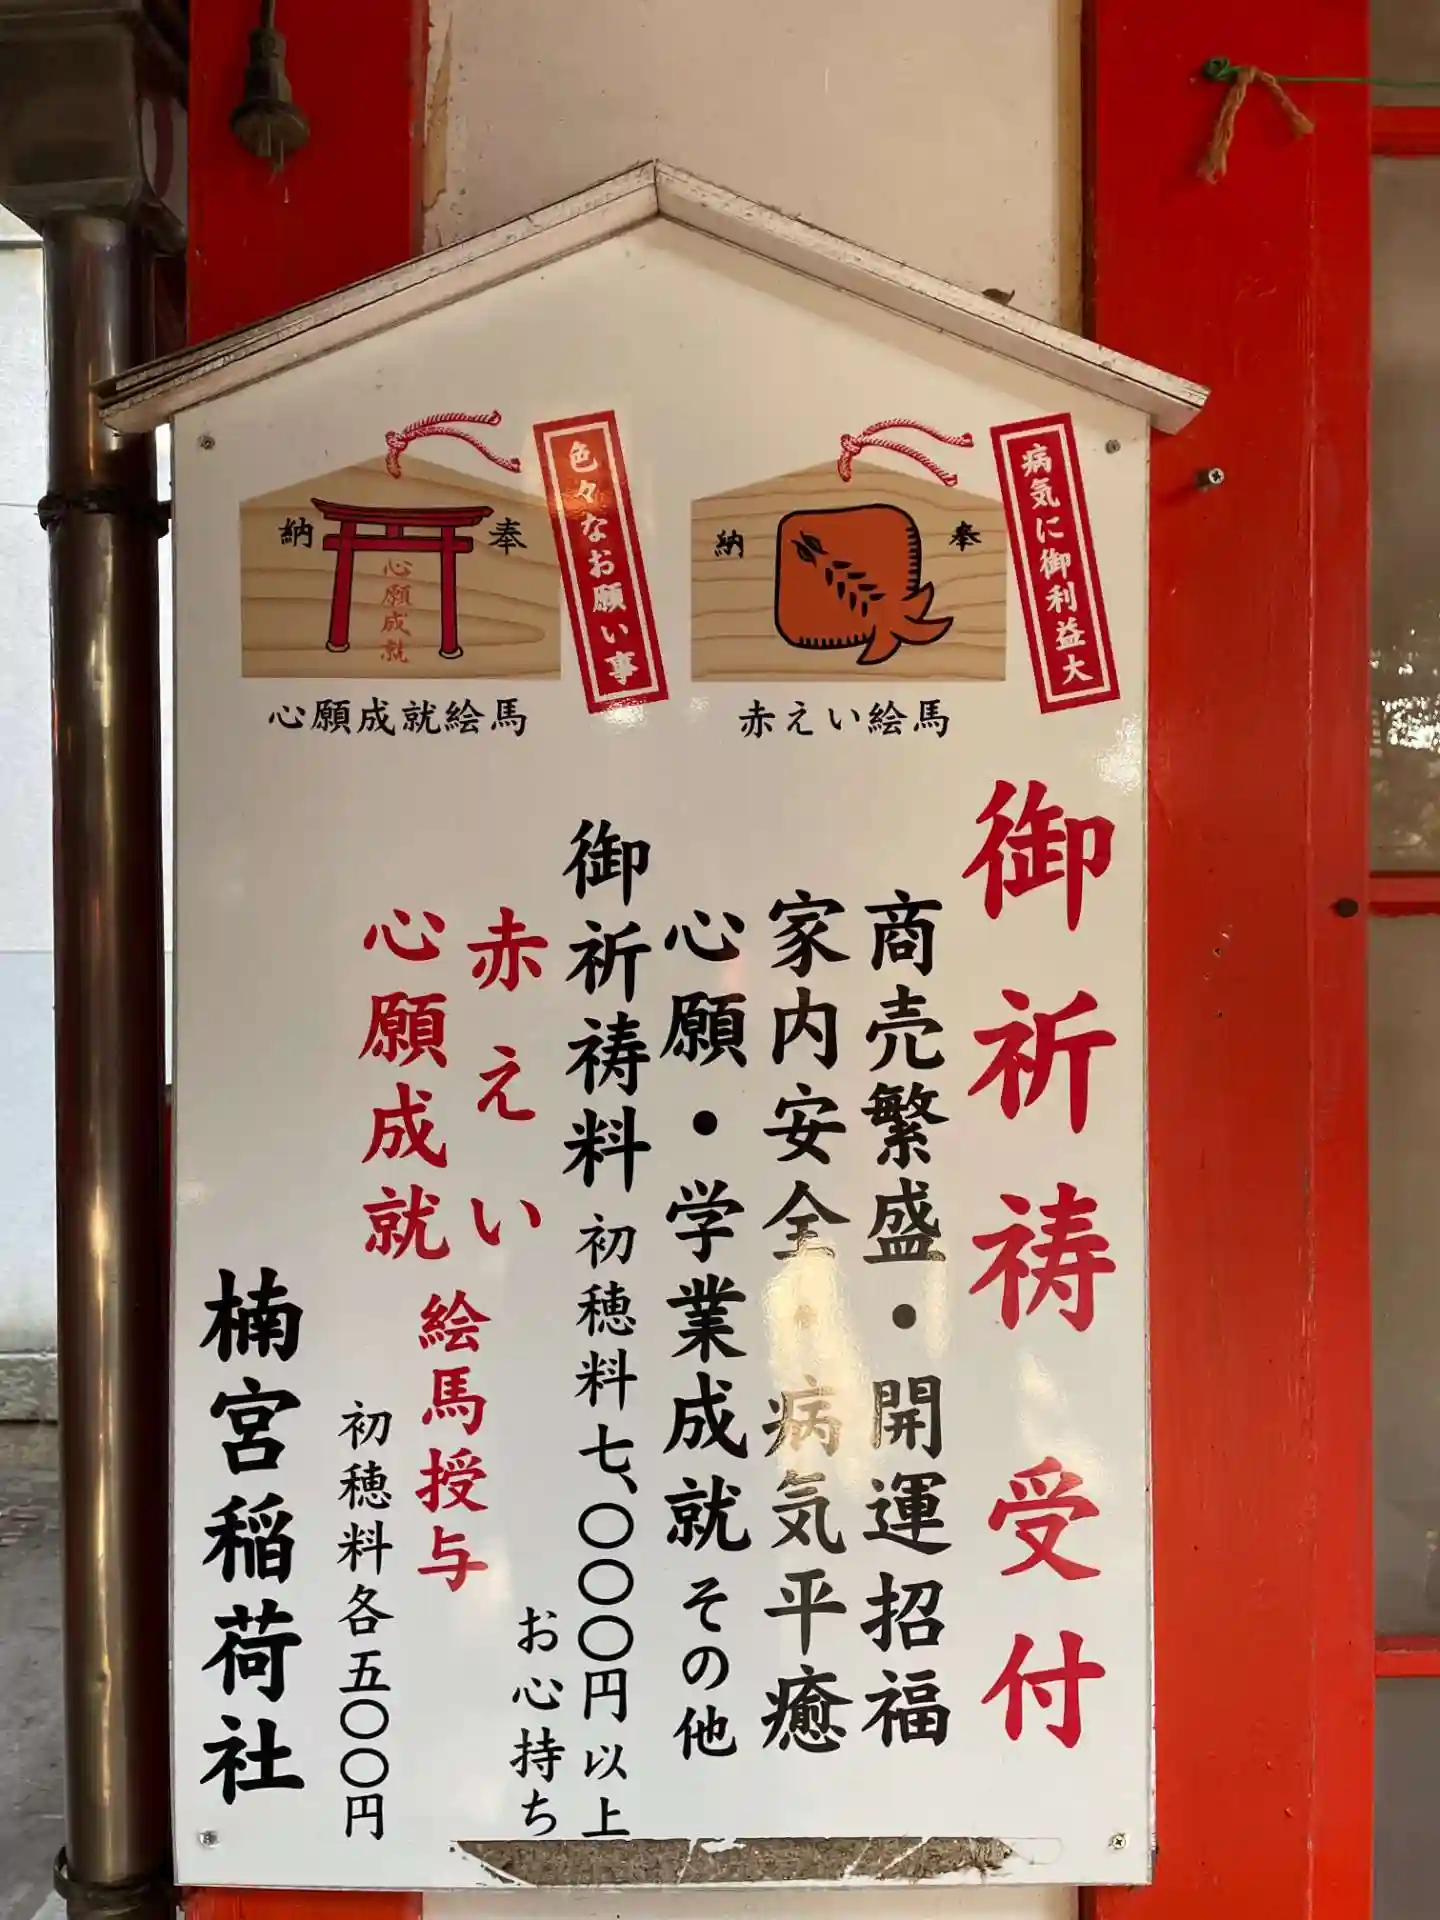 病気に御利益大
奉納
赤えい絵馬
色々なお願い事
奉納
心願成就
心願成就絵馬
御祈祷 受付
商売繁盛・開運招福
家内安全・病気平癒
心願・学業成就 その他
御祈祷料 初穂料七、〇〇〇円以上
お心持ち
赤えい
心願成就
絵馬授与
初穂料各五〇〇円
楠宮稲荷社